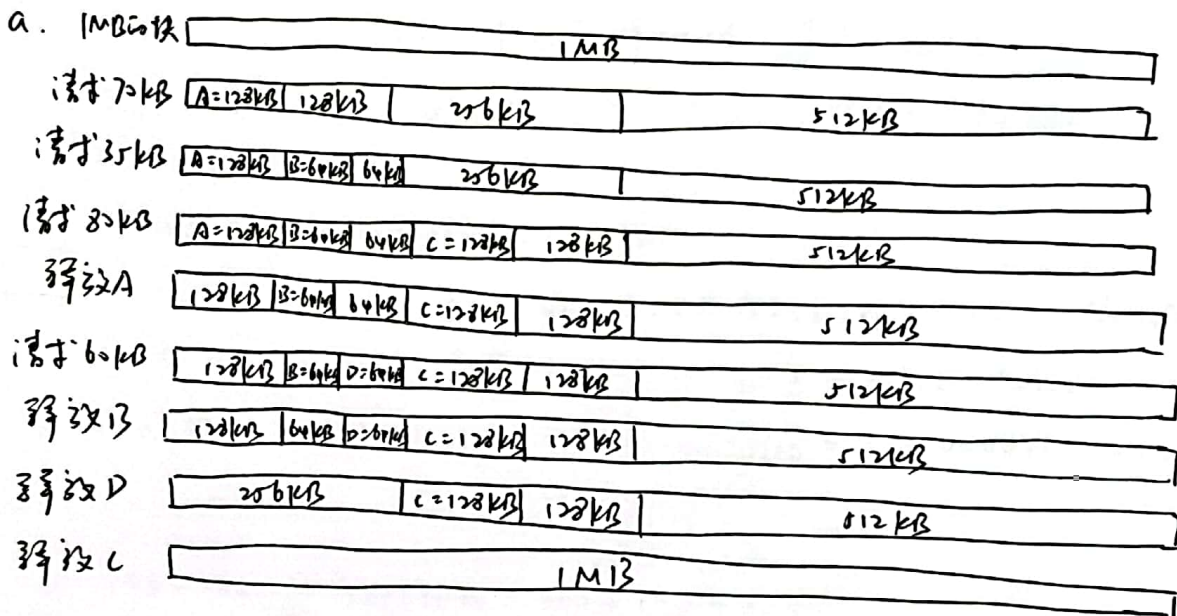 a. 1MB的块 1MB
请求70KB A=128KB 128KB 256KB 512KB
请求35KB A=128KB B=64KB 64KB 256KB 512KB
请求80KB A=128KB B=64KB 64KB C=128KB 128KB 512KB
释放A 128KB B=64KB 64KB C=128KB 128KB 512KB
请求60KB 128KB B=64KB D=64KB C=128KB 128KB 512KB
释放B 128KB 64KB D=64KB C=128KB 128KB 512KB
释放D 256KB C=128KB 128KB 512KB
释放C 1MB